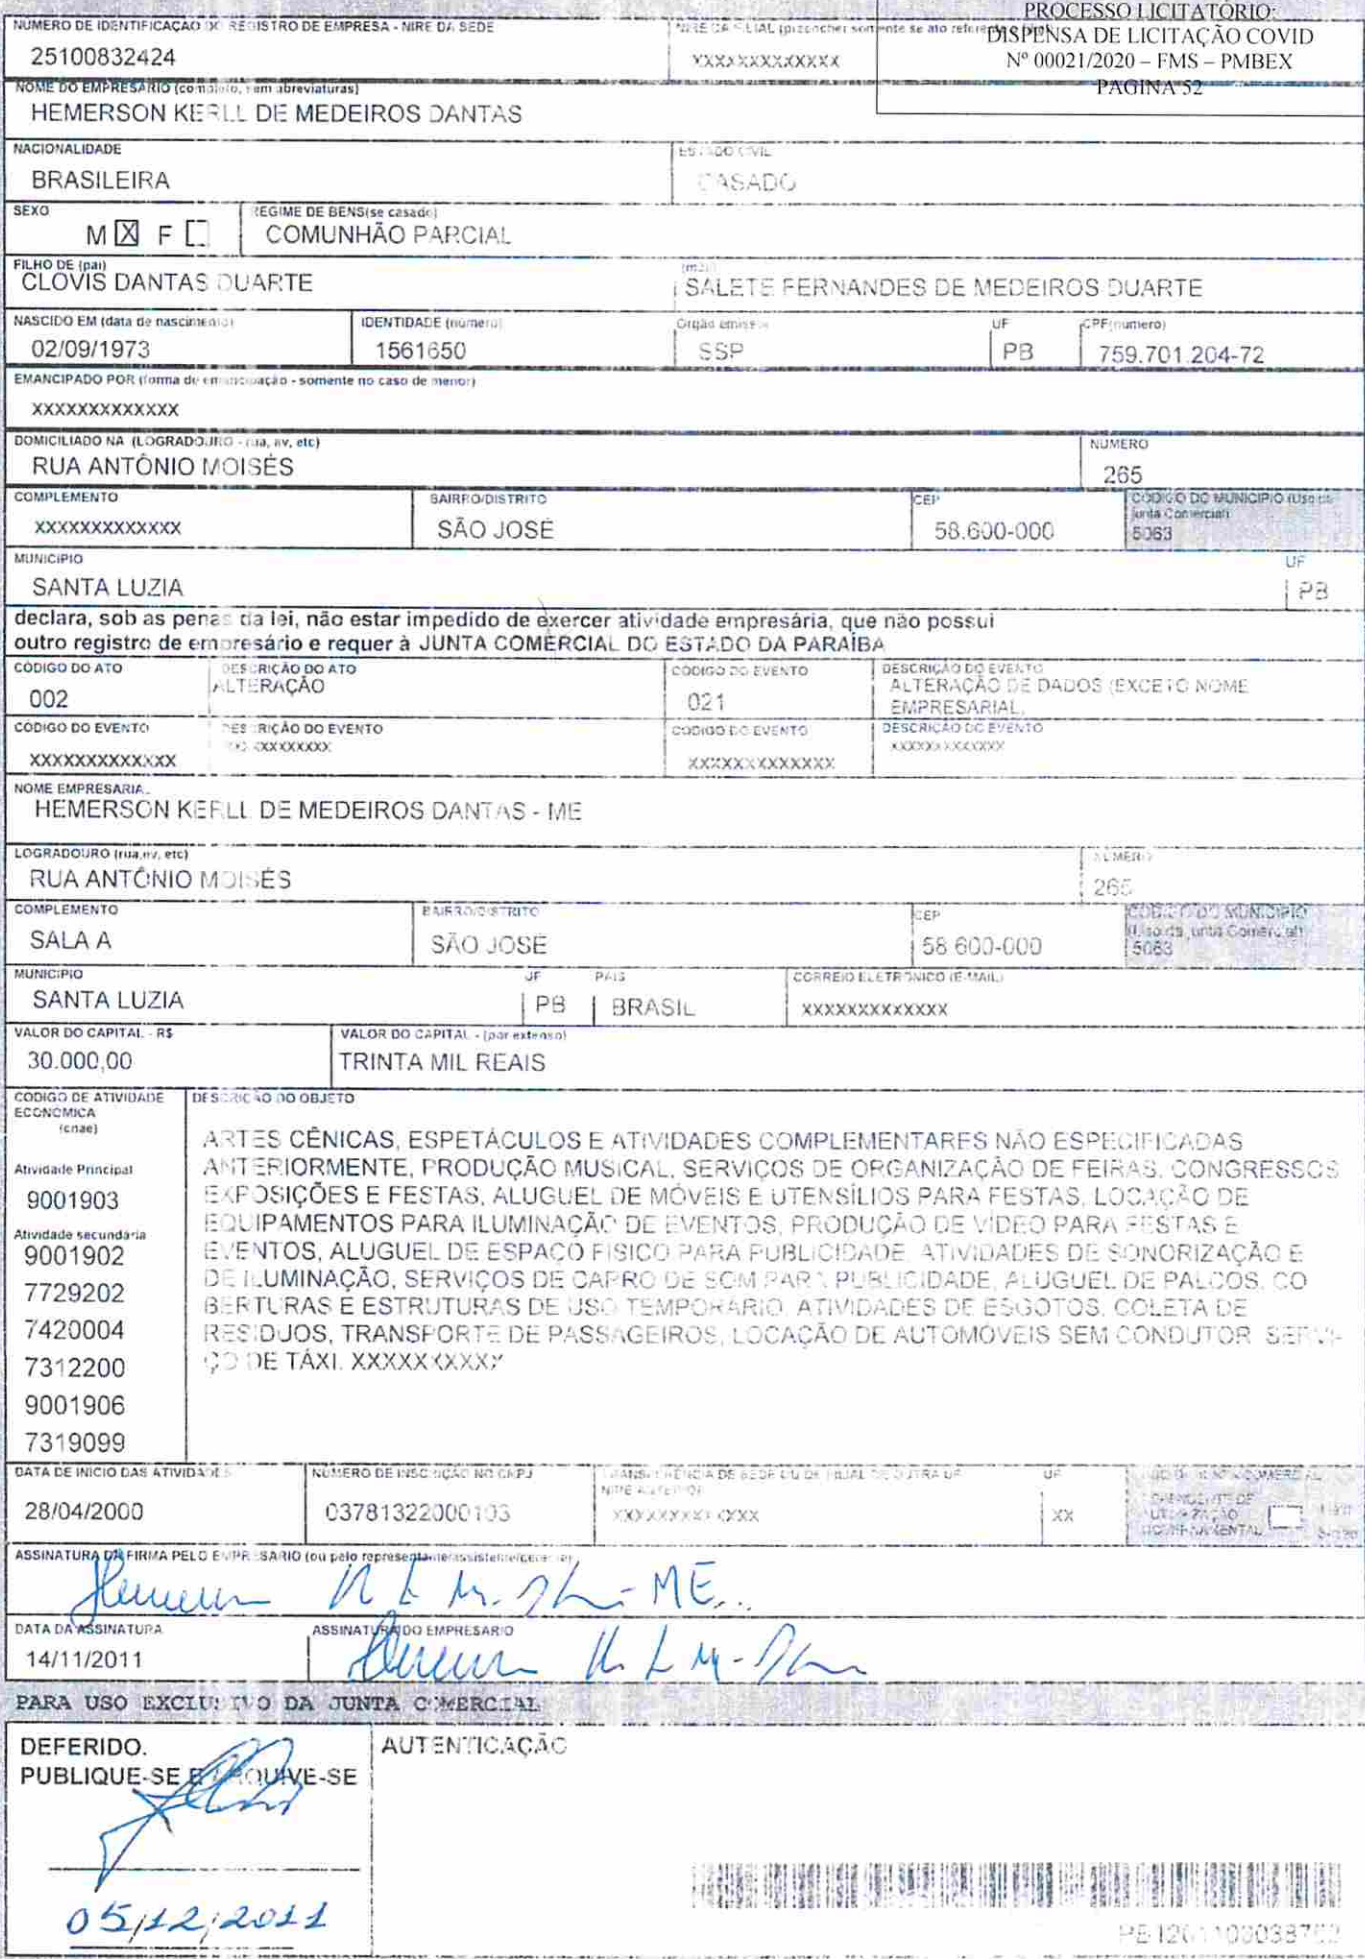 PROCESSO LICITATÓRIO:
DISPENSA DE LICITAÇÃO COVID
Nº 00021/2020 – FMS – PMBEX
PAGINA 52
NÚMERO DE IDENTIFICAÇÃO DO REGISTRO DE EMPRESA - NIRE DA SEDE
25100832424
XXXXXXXXXXXXX
NOME DO EMPRESÁRIO (completo, sem abreviaturas)
HEMERSON KERLL DE MEDEIROS DANTAS
NACIONALIDADE
BRASILEIRA
ESTADO CIVIL
CASADO
SEXO
M ☒ F ☐
REGIME DE BENS(se casado)
COMUNHÃO PARCIAL
FILHO DE (pai)
CLOVIS DANTAS DUARTE
(mãe)
SALETE FERNANDES DE MEDEIROS DUARTE
NASCIDO EM (data de nascimento)
02/09/1973
IDENTIDADE (número)
1561650
Orgão emissor
SSP
UF
PB
CPF(número)
759.701.204-72
EMANCIPADO POR (forma de emancipação - somente no caso de menor)
XXXXXXXXXXXXX
DOMICILIADO NA (LOGRADOURO - rua, av, etc)
RUA ANTÔNIO MOISÉS
NÚMERO
265
COMPLEMENTO
XXXXXXXXXXXXX
BAIRRO/DISTRITO
SÃO JOSÉ
CEP
58.600-000
CÓDIGO DO MUNICIPIO (Uso da
Junta Comercial)
5063
MUNICIPIO
SANTA LUZIA
UF
PB
declara, sob as penas da lei, não estar impedido de exercer atividade empresária, que não possui
outro registro de empresário e requer à JUNTA COMERCIAL DO ESTADO DA PARAÍBA
CÓDIGO DO ATO
002
DESCRIÇÃO DO ATO
ALTERAÇÃO
CÓDIGO DO EVENTO
021
DESCRIÇÃO DO EVENTO
ALTERAÇÃO DE DADOS (EXCETO NOME
EMPRESARIAL
CÓDIGO DO EVENTO
XXXXXXXXXXXXX
DESCRIÇÃO DO EVENTO
CÓDIGO DO EVENTO
XXXXXXXXXXXXX
DESCRIÇÃO DO EVENTO
XXXXXXXXXXXXX
NOME EMPRESARIAL
HEMERSON KERLL DE MEDEIROS DANTAS - ME
LOGRADOURO (rua,av, etc)
RUA ANTÔNIO MOISÉS
NÚMERO
265
COMPLEMENTO
SALA A
BAIRRO/DISTRITO
SÃO JOSÉ
CEP
58 600-000
CÓDIGO DO MUNICIPIO
(Uso da Junta Comercial)
5063
MUNICIPIO
SANTA LUZIA
UF
PB
PAIS
BRASIL
CORREIO ELETRÔNICO (E-MAIL)
XXXXXXXXXXXXX
VALOR DO CAPITAL - R$
30.000,00
VALOR DO CAPITAL - (por extenso)
TRINTA MIL REAIS
CODIGO DE ATIVIDADE
ECONOMICA
(cnae)
Atividade Principal
9001903
Atividade secundária
9001902
7729202
7420004
7312200
9001906
7319099
DESCRIÇÃO DO OBJETO
ARTES CÊNICAS, ESPETÁCULOS E ATIVIDADES COMPLEMENTARES NÃO ESPECIFICADAS
ANTERIORMENTE, PRODUÇÃO MUSICAL, SERVIÇOS DE ORGANIZAÇÃO DE FEIRAS, CONGRESSOS
EXPOSIÇÕES E FESTAS, ALUGUEL DE MÓVEIS E UTENSÍLIOS PARA FESTAS, LOCAÇÃO DE
EQUIPAMENTOS PARA ILUMINAÇÃO DE EVENTOS, PRODUÇÃO DE VÍDEO PARA FESTAS E
EVENTOS, ALUGUEL DE ESPAÇO FISICO PARA PUBLICIDADE, ATIVIDADES DE SONORIZAÇÃO E
DE ILUMINAÇÃO, SERVIÇOS DE CARRO DE SOM PARA PUBLICIDADE, ALUGUEL DE PALCOS, CO
BERTURAS E ESTRUTURAS DE USO TEMPORARIO, ATIVIDADES DE ESGOTOS, COLETA DE
RESIDUOS, TRANSPORTE DE PASSAGEIROS, LOCAÇÃO DE AUTOMOVEIS SEM CONDUTOR SERVI-
ÇO DE TÁXI. XXXXXXXXXX
DATA DE INICIO DAS ATIVIDADES
28/04/2000
NÚMERO DE INSCRIÇÃO NO CNPJ
03781322000103
TRANSFERÊNCIA DE SEDE OU DE FILIAL DE OUTRA UF
NIRE ANTERIOR
XXXXXXXXXXXXX
UF
XX
ASSINATURA DA FIRMA PELO EMPRESÁRIO (ou pelo representante/assistente/gerente)
DATA DA ASSINATURA
14/11/2011
ASSINATURA DO EMPRESARIO
PARA USO EXCLUSIVO DA JUNTA COMERCIAL
DEFERIDO.
PUBLIQUE-SE E ARQUIVE-SE
05/12/2011
AUTENTICAÇÃO